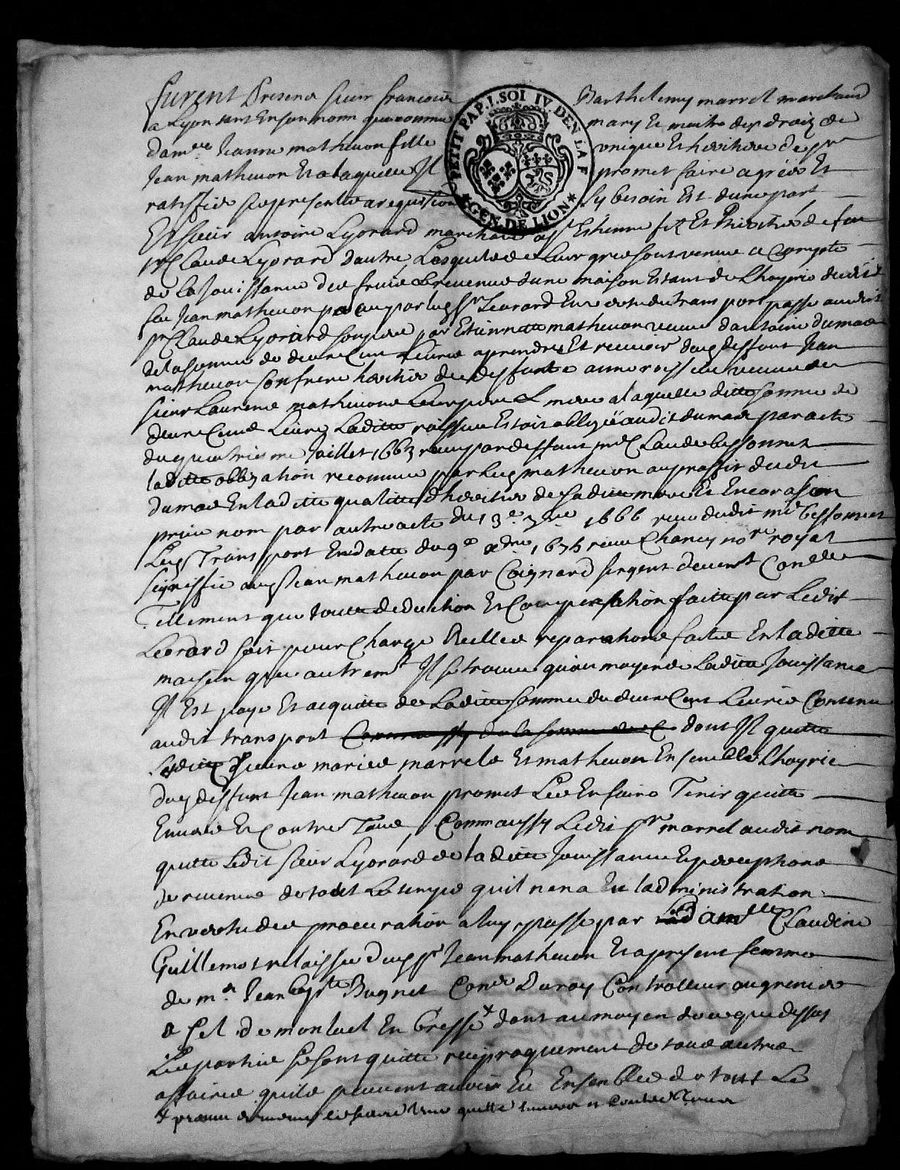 furent presens sieur francois Barthelemy marrel marchand
a Lyon tant en son nom que comme mary et maitre des droiz de
dam.lle Jeanne matheuon fille unique et heritiere de s.r
Jean matheuon et a laquelle Il promet faire agréer et
ratiffier ces presentes a requisition sy besoin est d'une part
PETIT PAP. 1. SOL IV DEN. LA F
GEN. DE LION
Et sieur antoine Lyorard marchand a S.t Estienne filz et heritier de feu
s.r Claude Lyorard d'autre Lesquels de Leur gré sont venus a Compte
de la Jouissance des fruits et revenus d'une maison estant de Lhoyrie dudit
feu Jean matheuon par led s.r Leorard En vertu du transport passé audit
s.r Claude Lyorard par Etiennette matheuon veuve d'antoine dumas
de la somme de deux Cent Livres a prendre et recevoir dud deffunt Jean
matheuon son frere heritier de deffunte anne veuve de
sieur Laurens matheuon mere a laquelle ditte somme de
deux Cens Livres Laditte estoit obligée audit dumas par acte
du quatriesme Juillet 1663 receu par deffunt m.e Claude bessonnet
laditte obligation reconnue par led matheuon au proffit dudit
dumas En laditte qualitté d'heritier de saditte mere et Encor a son
privé nom par autre acte du 13.e 1666 receu dudit m.e bessonnet
Led Transport En datte du 9.e 1676 receu Chancy no.re royal
signiffié aud Jean matheuon par Coignard sergent
Tellement que toutte deduction Et Compensation faitte par Ledit
Leorard soit pour Charges Reelles reparations faites En laditte
maison que autrem.t Il se trouve qu'au moyen de Laditte Jouissance
Il Est payé Et acquitté de Laditte somme de deux Cens Livres Contenu
audit transport dont Il quitte
Lesditts mariés marrel Et matheuon Ensemble Lhoyrie
dud deffunt Jean matheuon promet Les En faire Tenir quitte
Envers Et Contre Tous Comm'aussy Ledit s.r marrel audit nom
quitte Ledit sieur Lyorard de laditte Jouissance Et perceptions
de revenus de tout Le temps qu'il en a Eu l'administration
En vertu des procuration a luy passée par Dam.lle Claudine
Guillemot relaissée dud s.r Jean matheuon Et a present femme
de m.r Jean bap.te Bugnet Con.er Du roy Controlleur au grenier
a sel de monluel En bresse dont au moyen de ce que dessus
Les parties se sont quitté reciproquement de tous autres
affaires qu'ils peuvent avoir Eu Ensemble de tout Le
passé promettant s'en faire tenir quitte Envers et Contre Tous